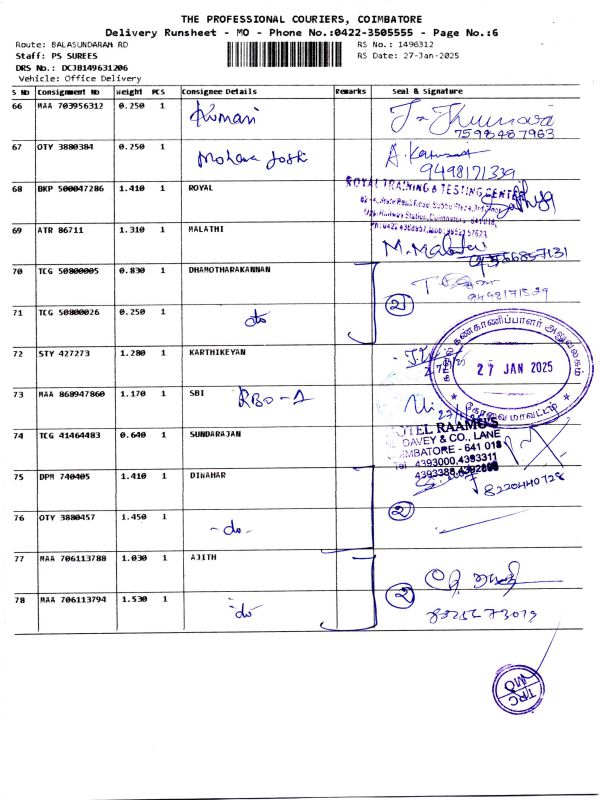 THE PROFESSIONAL COURIERS, COIMBATORE
Delivery Runsheet - MO - Phone No.:0422-3505555 - Page No.:6
Route: BALASUNDARAM RD
RS No.: 1496312
Staff: PS SUREES
RS Date: 27-Jan-2025
DRS No.: DCJB149631206
Vehicle: Office Delivery
S No Consignment No Weight PCS Consignee Details Remarks Seal & Signature
66 MAA 703956312 0.250 1 Kumari
7598487963
67 OTY 3880384 0.250 1 Mohana Joshi
9498171339
68 BKP 500047286 1.410 1 ROYAL
ROYAL TRAINING & TESTING CENTER
69 ATR 86711 1.310 1 MALATHI
M. Malathi
70 TCG 50800005 0.830 1 DHAMOTHARAKANNAN
2
71 TCG 50800026 0.250 1 do
72 STY 427273 1.280 1 KARTHIKEYAN
காவல் கண்காணிப்பாளர் அலுவலகம்
27 JAN 2025
கோவை மாவட்டம்
73 MAA 868947860 1.170 1 SBI RBO-1
74 TCG 41464483 0.640 1 SUNDARAJAN
HOTEL RAAMU'S
DAVEY & CO., LANE
COIMBATORE - 641 018
Tel 4393000,4393311
75 DPM 740405 1.410 1 DINAHAR
8220440728
2
76 OTY 3880457 1.450 1 -do-
77 MAA 706113788 1.030 1 AJITH
2
78 MAA 706113794 1.530 1 do
TPC
MO